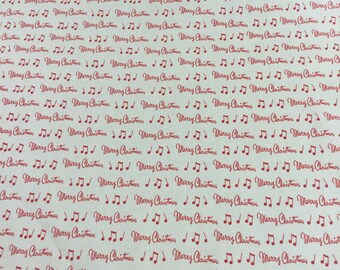 Merry Christmas Merry Christmas Merry Christmas Merry Christmas
Merry Christmas Merry Christmas Merry Christmas
Merry Christmas Merry Christmas Merry Christmas Merry Christmas
Merry Christmas Merry Christmas Merry Christmas
Merry Christmas Merry Christmas Merry Christmas Merry Christmas
Merry Christmas Merry Christmas Merry Christmas
Merry Christmas Merry Christmas Merry Christmas
Merry Christmas Merry Christmas Merry Christmas
Merry Christmas Merry Christmas Merry Christmas
Merry Christmas Merry Christmas Merry Christmas
Merry Christmas Merry Christmas Merry Christmas
Merry Christmas Merry Christmas Merry Christmas
Merry Christmas Merry Christmas Merry Christmas
Merry Christmas Merry Christmas
Merry Christmas Merry Christmas Merry Christmas